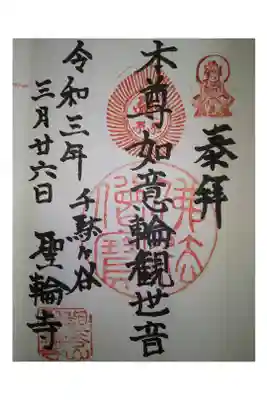 奉拝
本尊如意輪観世音
千駄ヶ谷 聖輪寺
令和三年
三月廿六日